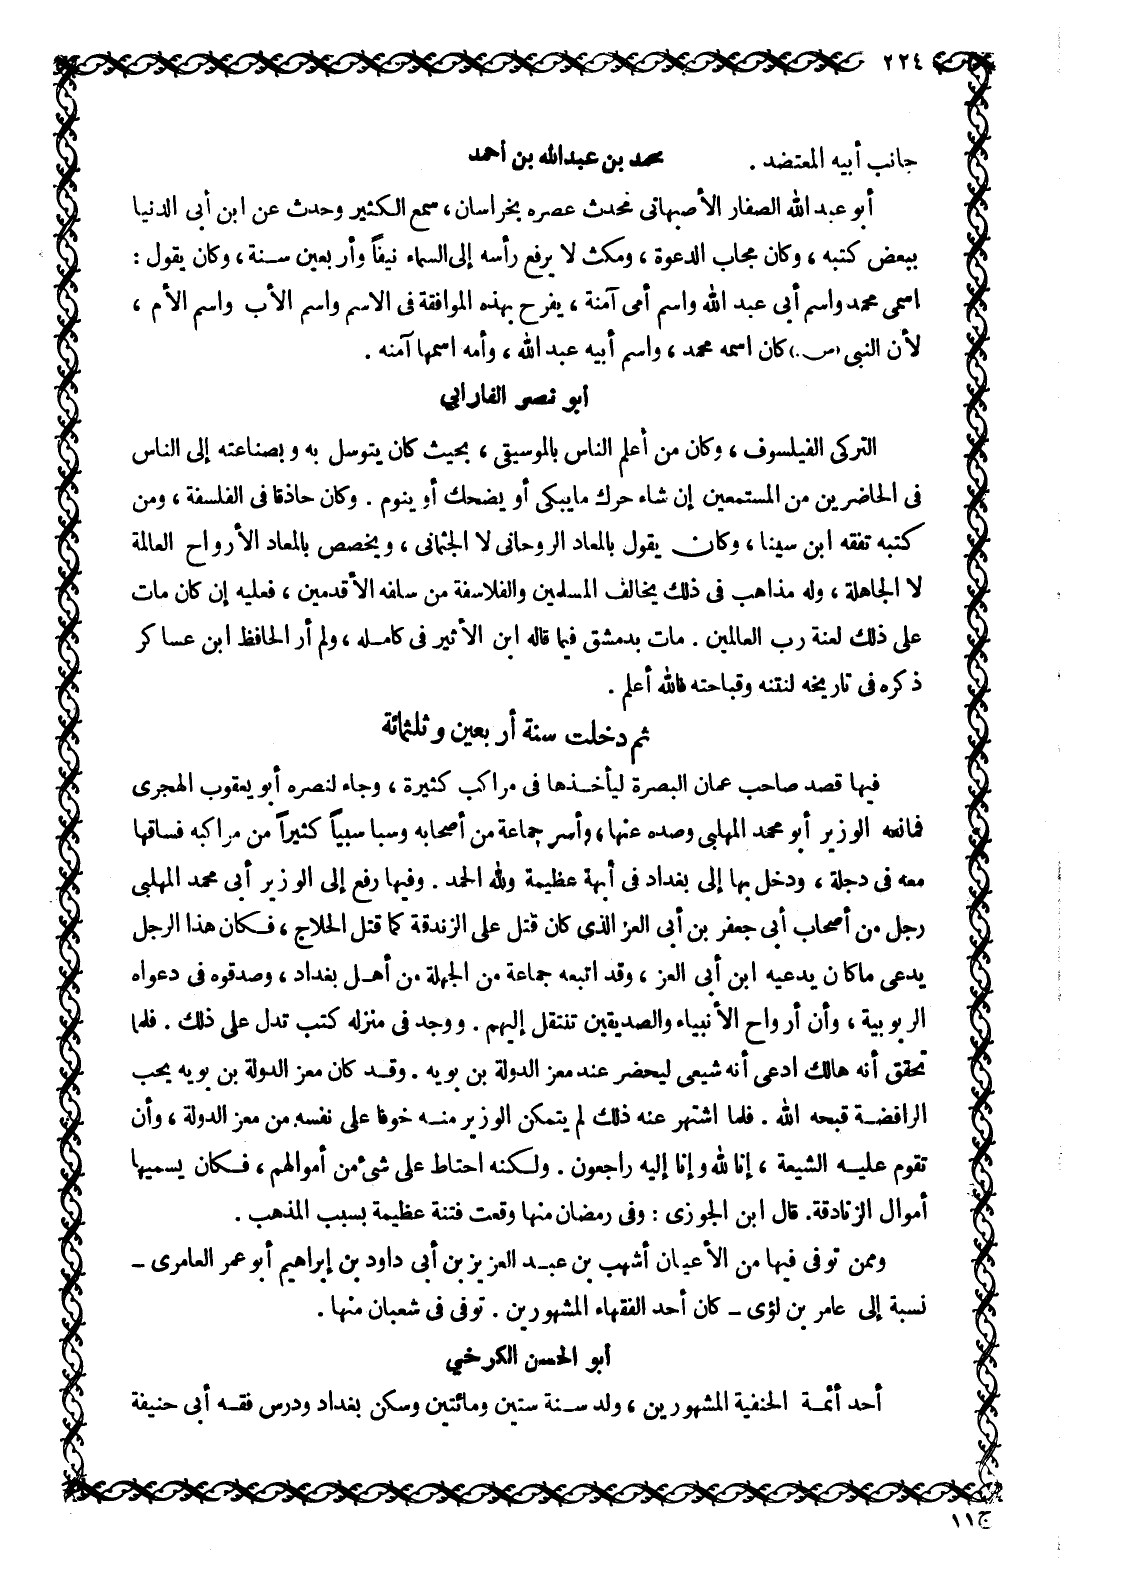 ٢٢٤
جانب أبيه المعتضد . محمد بن عبدالله بن أحمد
أبو عبد الله الصفار الأصبهانى محدث عصره بخراسان ، سمع الكثير وحدث عن ابن أبى الدنيا
ببعض كتبه ، وكان مجاب الدعوة ، ومكث لا يرفع رأسه إلى السماء نيفاً وأربعين سنة ، وكان يقول :
اسمى محمد واسم أبى عبد الله واسم أمى آمنة ، يفرح بهذه الموافقة فى الاسم واسم الأب واسم الأم ،
لأن النبى (س.) كان اسمه محمد ، واسم أبيه عبد الله ، وأمه اسمها آمنه .
أبو نصر الفارابي
التركى الفيلسوف ، وكان من أعلم الناس بالموسيقى ، بحيث كان يتوسل به و بصناعته إلى الناس
فى الحاضرين من المستمعين إن شاء حرك مايبكى أو يضحك أو ينوم . وكان حاذقا فى الفلسفة ، ومن
كتبه تفقه ابن سينا ، وكان يقول بالمعاد الروحانى لا الجثمانى ، ويخصص بالمعاد الأرواح العالمة
لا الجاهلة ، وله مذاهب فى ذلك يخالف المسلمين والفلاسفة من سلفه الأقدمين ، فعليه إن كان مات
على ذلك لعنة رب العالمين . مات بدمشق فيما قاله ابن الأثير فى كامله ، ولم أر الحافظ ابن عساكر
ذكره فى تاريخه لنتنه وقباحته فالله أعلم .
ثم دخلت سنة أربعين وثلثمائة
فيها قصد صاحب عمان البصرة ليأخذها فى مراكب كثيرة ، وجاء لنصره أبو يعقوب الهجرى
فمانعه الوزير أبو محمد المهلبى وصده عنها ، وأسر جماعة من أصحابه وسبا سبياً كثيراً من مراكبه فساقها
معه فى دجلة ، ودخل بها إلى بغداد فى أبهة عظيمة ولله الحمد . وفيها رفع إلى الوزير أبى محمد المهلبى
رجل من أصحاب أبى جعفر بن أبى العز الذى كان قتل على الزندقة كما قتل الحلاج ، فكان هذا الرجل
يدعى ماكان يدعيه ابن أبى العز ، وقد اتبعه جماعة من الجهلة من أهل بغداد ، وصدقوه فى دعواه
الربوبية ، وأن أرواح الأنبياء والصديقين تنتقل إليهم . ووجد فى منزله كتب تدل على ذلك . فلما
تحقق أنه هالك ادعى أنه شيعى ليحضر عند معز الدولة بن بويه . وقد كان معز الدولة بن بويه يحب
الرافضة قبحه الله . فلما اشتهر عنه ذلك لم يتمكن الوزير منه خوفا على نفسه من معز الدولة ، وأن
تقوم عليه الشيعة ، إنا لله وإنا إليه راجعون . ولكنه احتاط على شىء من أموالهم ، فكان يسميها
أموال الزنادقة. قال ابن الجوزى : وفى رمضان منها وقعت فتنة عظيمة بسبب المذهب .
وممن توفى فيها من الأعيان أشهب بن عبد العزيز بن أبى داود بن إبراهيم أبو عمر العامرى –
نسبة إلى عامر بن لؤى – كان أحد الفقهاء المشهورين . توفى فى شعبان منها .
أبو الحسن الكرخي
أحد أئمة الحنفية المشهورين ، ولد سنة ستين ومائتين وسكن بغداد ودرس فقه أبى حنيفة
ج١١